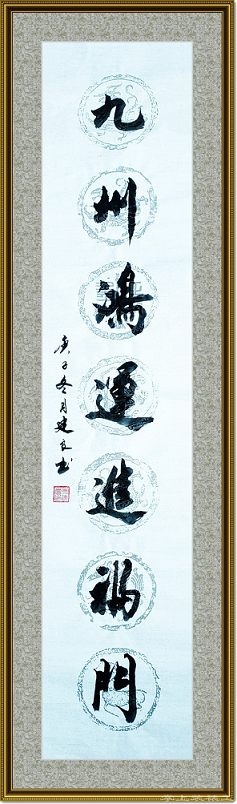 九州鴻運進福門
庚子冬月建良书